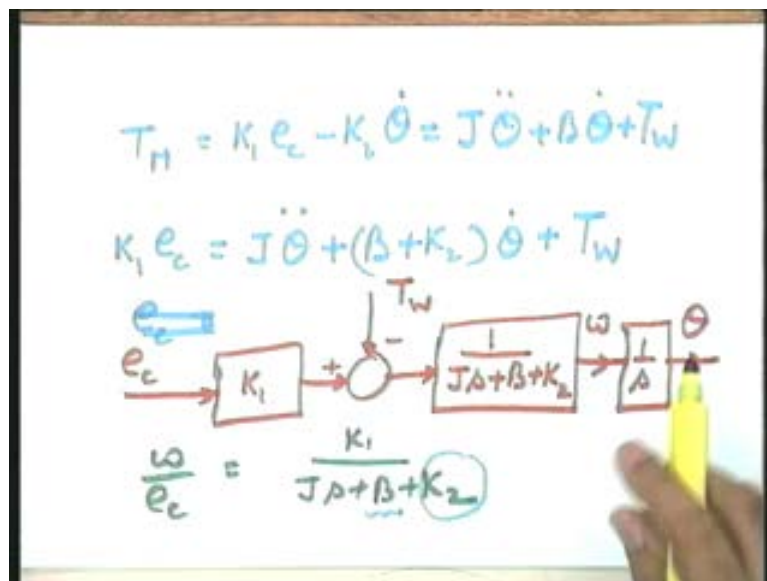 T_M = K₁ e_c - K₂ θ̇ = J θ̈ + B θ̇ + T_W
K₁ e_c = J θ̈ + (B + K₂) θ̇ + T_W
e_c
T_W
e_c K₁ + - 1/(Js+B+K₂) ω 1/s θ
ω/e_c = K₁/(Js+B+K₂)